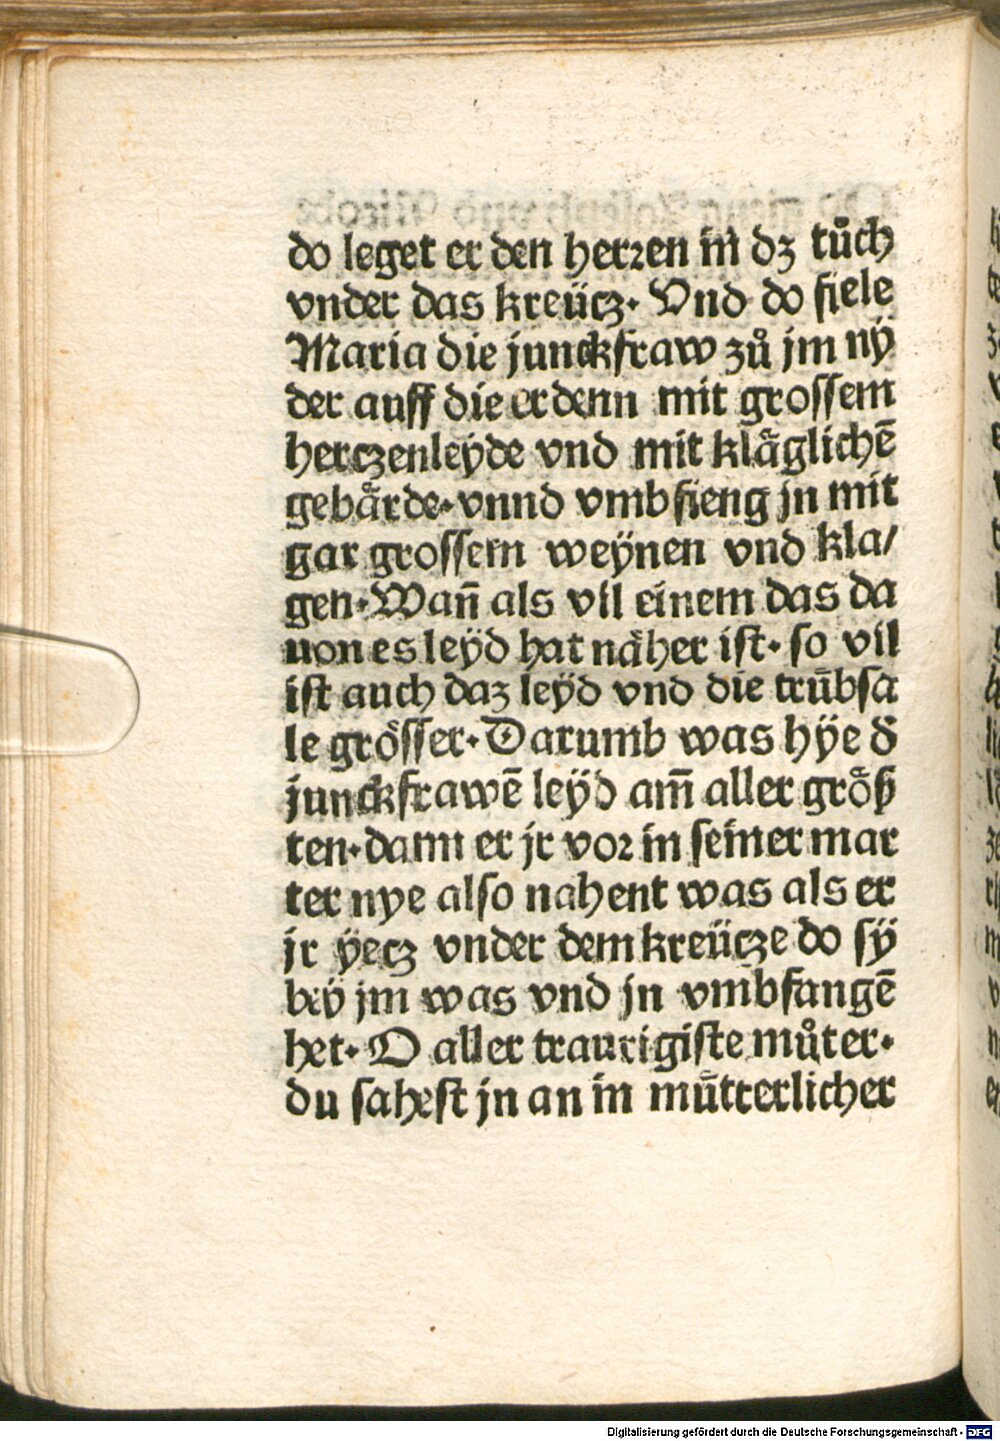 do leget er den herꝛen in dz tůch
vnder das kreücz. Vnd do fiele
Maria die junckfraw zů jm nÿ
der auff die erdenn mit grossem
herczenleÿde vnd mit kläglichē
gebärde. vnnd vmbfieng jn mit
gar grossem weÿnen vnd kla/
gen. Wañ als vil einem das da
uon es leÿd hat näher ist. so vil
ist auch daz leÿd vnd die trübsa
le grösser. Darumb was hÿe d̕
junckfrawē leÿd am̄ aller gröſz
ten. dann er jr voꝛ in seiner mar
ter nye also nahent was als er
jr ÿecz vnder dem kreücze do sÿ
beÿ jm was vnd jn vmbfangē
het. O aller traurigiste můter.
du sahest jn an in mütterlicher
Digitalisierung gefördert durch die Deutsche Forschungsgemeinschaft - DFG